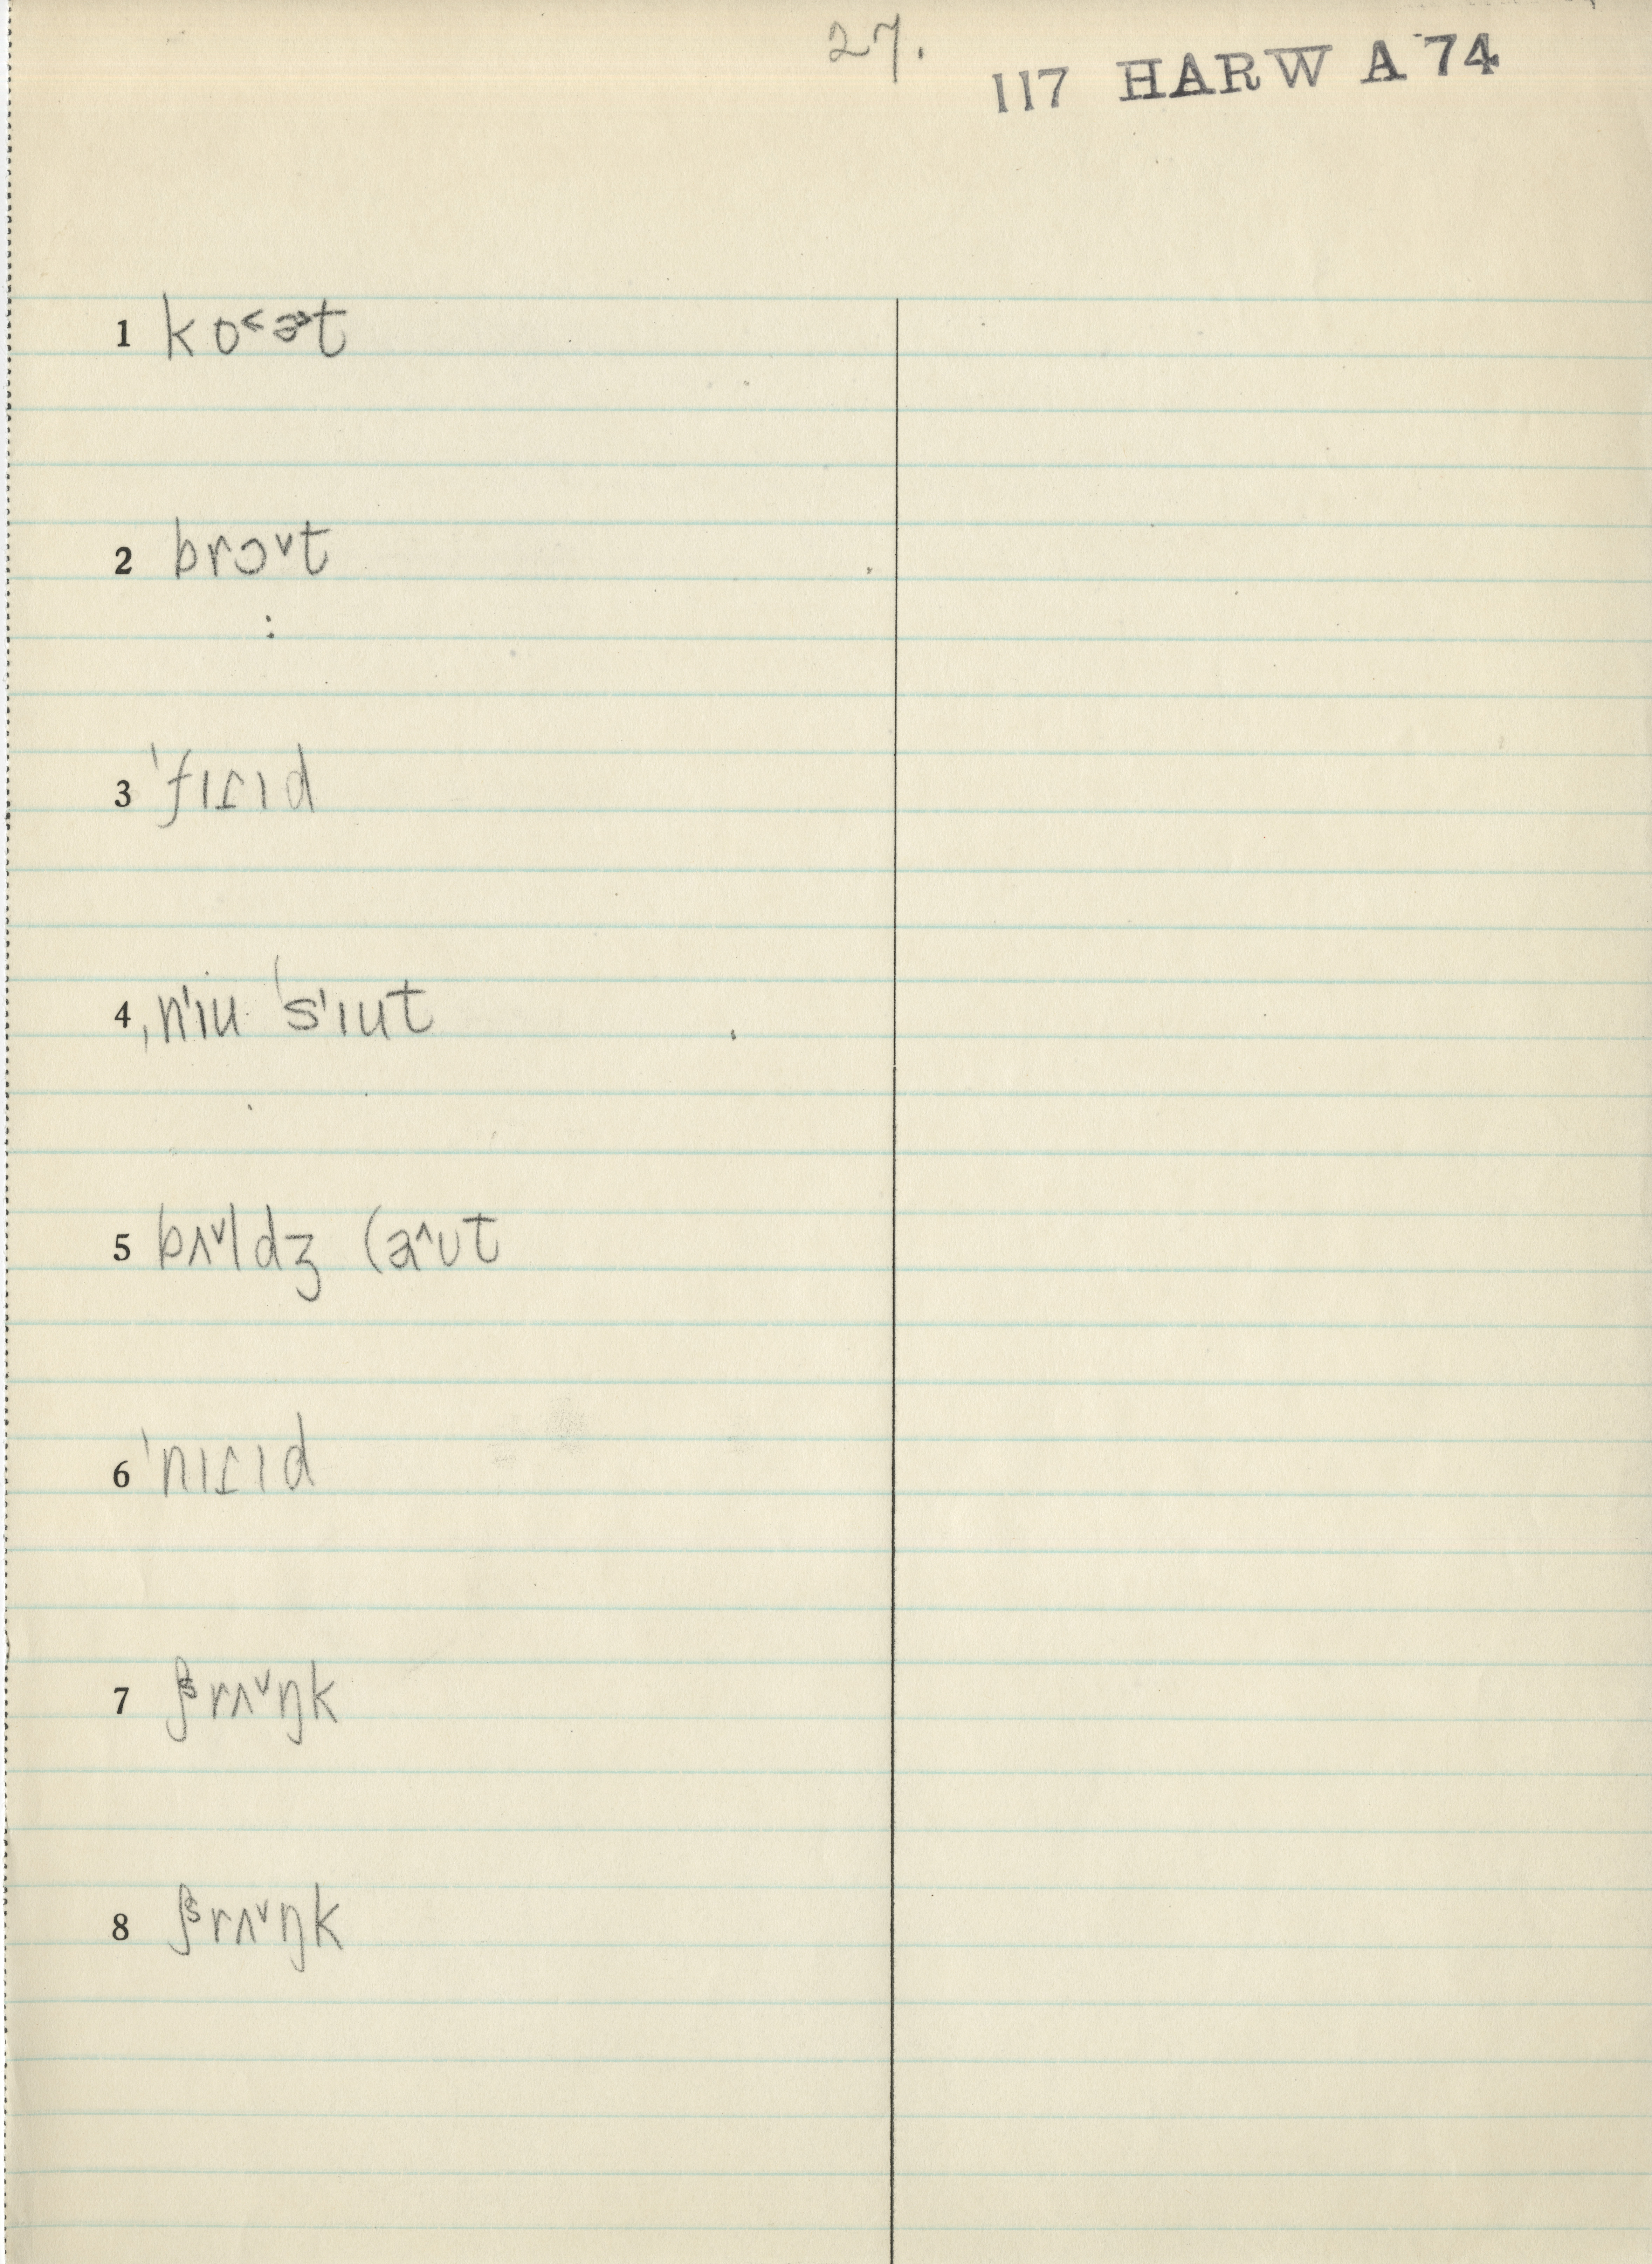 27.
117 HARW A 74
1 ko˂ə˃t
2 brɔ˅t
3 ˈfɪɾɪd
4 ˌn'ɪu ˈs'ɪut
5 bʌ˅ldʒ (a˄ʊt
6 ˈnɪɾɪd
7 ʃˢrʌ˅ŋk
8 ʃˢrʌ˅ŋk